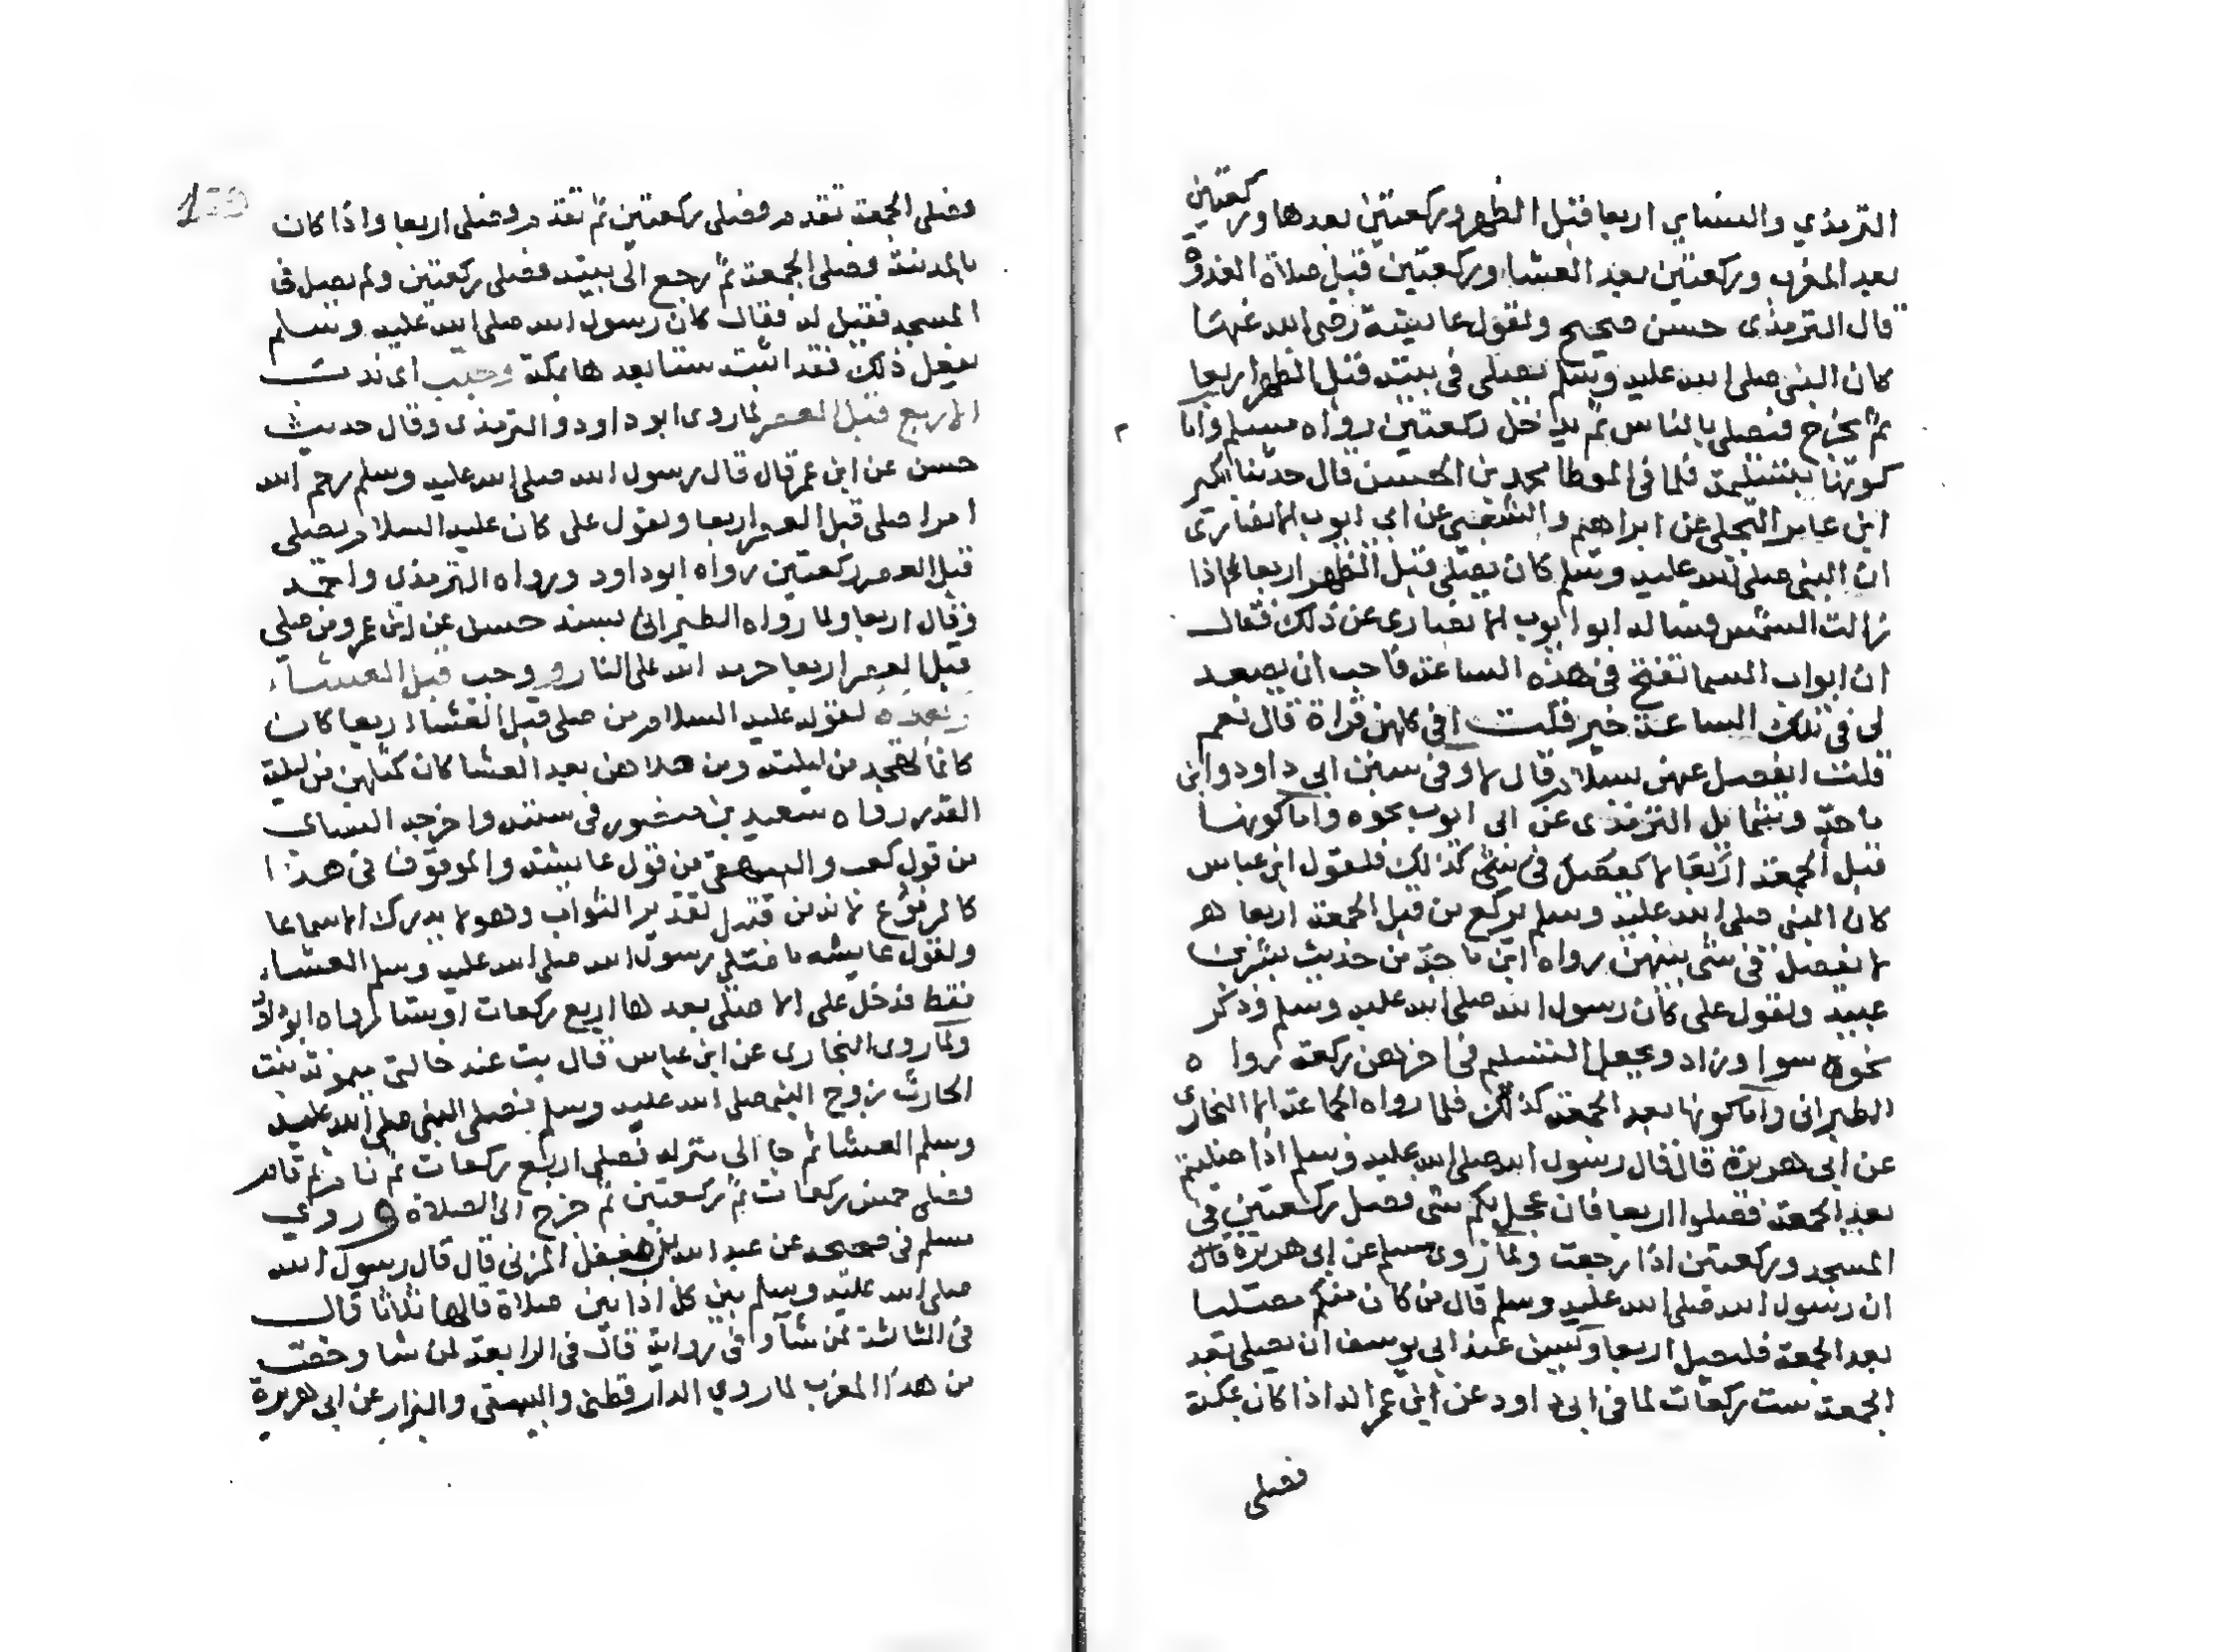 الترمذي والنساي اربعا قبل الظهر وركعتين بعدها وركعتين
بعد المغرب وركعتين بعد العشا وركعتين قبل صلاة الغدوة
قال الترمذى حسن صحيح ولقول عايشة رضى الله عنها
كان النبى صلى الله عليه وسلم يصلى فى بيته قبل الظهر اربعا
ثم يخرج فيصلى بالناس ثم يدخل ركعتين رواه مسلم واما
كونها بتسليمة فلما فى الموطا محمد بن الحسن قال حدثنا بكير
ابن عامر البجلى عن ابراهيم والشعبى عن ابى ايوب الانصارى
ان النبى صلى الله عليه وسلم كان يصلى قبل الظهر اربعا اذا
زالت الشمس فساله ابو ايوب الانصارى عن ذلك فقال
ان ابواب السما تفتح فى هذه الساعة فاحب ان يصعد
لى فى تلك الساعة خير قلت افى كلهن قراة قال نعم
قلت ايفصل عنهن بسلام قال لا وفى سنن ابى داود وابن
ماجة وشمايل الترمذى عن ابى ايوب نحوه واما كونها
قبل الجمعة اربعا لا يفصل فى شى كذلك فلقول ابن عباس
كان النبى صلى الله عليه وسلم يركع من قبل الجمعة اربعا
لا يفصل فى شى بينهن رواه ابن ماجة من حديث بشر بن
عبيد ولقول على كان رسول الله صلى الله عليه وسلم فذكر
نحوه سوا وزاد ويجعل التسليم فى اخرهن ركعة رواه
الطبرانى واما كونها بعد الجمعة كذلك فلما رواه الجماعة الا البخارى
عن ابى هريرة قال قال رسول الله صلى الله عليه وسلم اذا صليتم
بعد الجمعة فصلوا اربعا فان عجل بكم شى فصل ركعتين فى
المسجد وركعتين اذا رجعت ولما روى مسلم عن ابى هريرة قال
ان رسول الله صلى الله عليه وسلم قال من كان منكم مصليا
بعد الجمعة فليصل اربعا وسن عند ابى يوسف ان يصلى بعد
الجمعة ست ركعات لما فى ابى داود عن ابن عمر انه اذا كان بمكة
فصلى
فصلى الجمعة تقدم فصلى ركعتين ثم تقدم فصلى اربعا واذا كان
بالمدينة فصلى الجمعة ثم رجع الى بيته فصلى ركعتين ولم يصل فى
المسجد فقيل له فقال كان رسول الله صلى الله عليه وسلم
يفعل ذلك فقد اثبت ستا بعدها بمكة وحبب اى ندبت
الاربع قبل العصر لما روى ابو داود والترمذى وقال حديث
حسن عن ابن عمر قال قال رسول الله صلى الله عليه وسلم رحم الله
امرا صلى قبل العصر اربعا ولقول على كان عليه السلام يصلى
قبل العصر ركعتين رواه ابو داود ورواه الترمذى واحمد
وقال اربعا ولما رواه الطبرانى بسند حسن عن ابن عمرو من صلى
قبل العصر اربعا حرمه الله على النار وحبب قبل العشاء
وبعده لقوله عليه السلام من صلى قبل العشا اربعا كان
كانما تهجد من ليلته ومن صلاهن بعد العشا كان كمثلهن من ليلة
القدر رواه سعيد بن منصور فى سننه واخرجه النساى
من قول كعب والبيهقى من قول عايشة والموقوف فى هذا
كالمرفوع لانه من قبيل تقدير الثواب وهو لا يدرك الا سماعا
ولقول عايشه ما صلى رسول الله صلى الله عليه وسلم العشاء
فقط فدخل على الا صلى بعدها اربع ركعات او ستا رواه ابو داود
ولما روى البخارى عن ابن عباس قال بت عند خالتى ميمونة بنت
الحارث زوج النبى صلى الله عليه وسلم فصلى النبى صلى الله عليه
وسلم العشا ثم جا الى منزله فصلى اربع ركعات ثم نام ثم قام
فصلى خمس ركعات ثم ركعتين ثم خرج الى الصلاة وروى
مسلم فى صحيحه عن عبد الله بن مغفل المزنى قال قال رسول الله
صلى الله عليه وسلم بين كل اذانين صلاة قالها ثلاثا قال
فى الثالثة لمن شا وفى رواية قال فى الرابعة لمن شا وخصت
من هذا المغرب لما روى الدارقطنى والبيهقى والبزار عن ابى هريرة